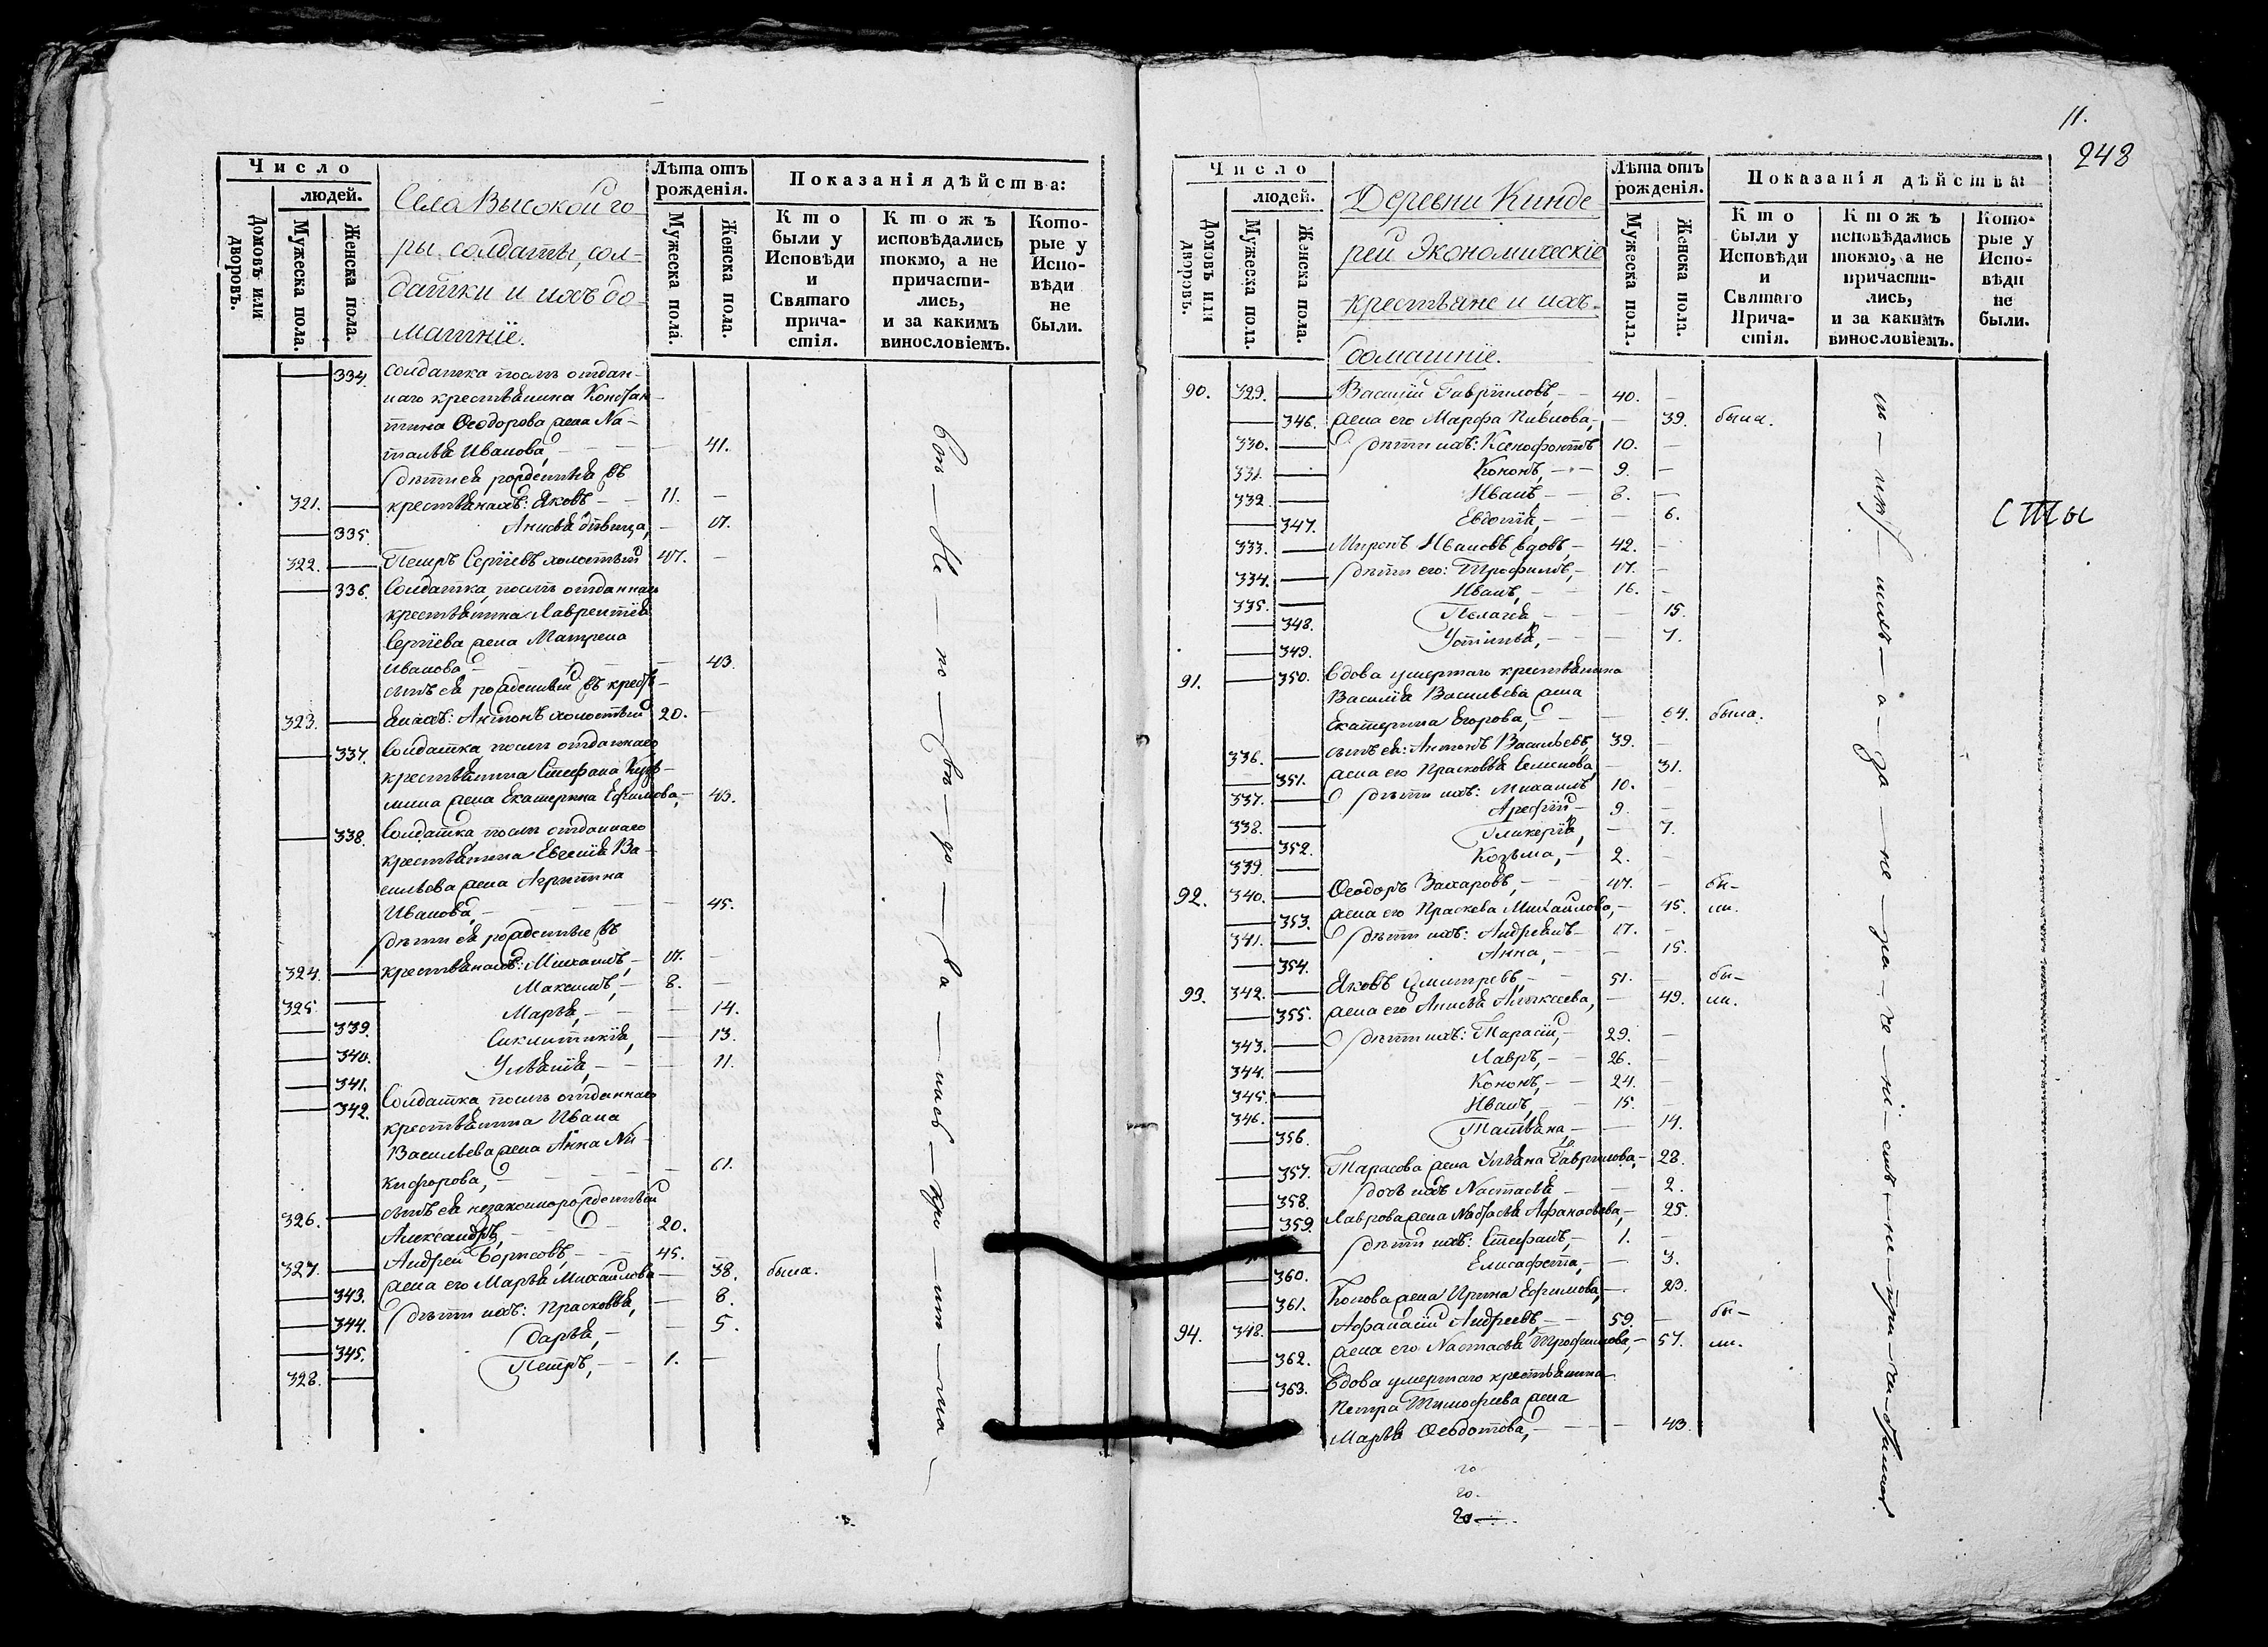 Число
людей.
Домовъ или дворовъ.
Мужеска пола.
Женска пола.
Села Высокой го-
ры солдаты, сол-
датки и ихъ до-
машніе.
Лѣта отъ рожденія.
Мужеска пола
Женска пола.
Показанія дѣйства:
Кто были у Исповѣди и Святаго прича-стія.
Ктожъ исповѣдались токмо, а не причасти-лись, и за какимъ винословіемъ.
Кото-рые у Испо-вѣди не были.
334. Солдатка послѣ отдан-
наго крестьянина Констан-
тина Ѳеодорова жена На-
талья Иванова, — 41.
дѣти ея рожденныя въ
321. крестьянахъ: Яковъ — 11. —
335. Анисья дѣвица, — 17.
322. Петръ Сергіевъ холостый 47. —
336. Солдатка послѣ отданнаго
крестьянина Лаврентія
Сергіева жена Матрена
Иванова — 43.
сынъ ея рожденный въ кресть-
323. янахъ: Антонъ холостый 20. —
337. Солдатка послѣ отданнаго
крестьянина Стефана Кузь-
мина жена Екатерина Ефимова, — 43.
338. Солдатка послѣ отданнаго
крестьянина Евгенія Ва-
сильева жена Агрипина
Иванова, — 45.
дѣти ея рожденные въ
324. крестьянахъ: Михаилъ, — 17. —
325. Максимъ, — 8. —
339. Марья, — 14.
340. Синклитикія, — 13.
341. Ульянія, — 11.
342. Солдатка послѣ отданнаго
крестьянина Ивана
Васильева жена Анна Ни-
кифорова, — 61.
сынъ ея незаконнорожденный
326. Александръ, — 20.
327. Андрей Борисовъ, — 45.
343. жена его Марья Михайлова — 38. была.
344. дѣти ихъ: Прасковья, — 8.
345. Дарья, — 5.
328. Петръ, — 1. —
11.
248
Число
людей.
Домовъ или дворовъ.
Мужеска пола.
Женска пола.
Деревни Кинде-
рей Экономическіе
крестьяне и ихъ
домашніе.
Лѣта отъ рожденія.
Мужеска пола.
Женска пола.
Показанія дѣйства
Кто были у Исповѣди и Святаго Прича-стія.
Ктожъ исповѣдались токмо, а не причасти-лись, и за какимъ винословіемъ.
Кото-рые у Испо-вѣди не были.
90. 329. Василій Гавріиловъ, — 40. —
346. жена его Марфа Павлова, — 39. была.
330. дѣти ихъ: Ксенофонтъ 10. —
331. Кононъ, — 9. —
332. Иванъ — 8. —
347. Евдокія, — 6.
333. Миронъ Ивановъ вдовъ, — 42. —
334. дѣти его: Трофимъ, — 17. —
335. Иванъ, — 16. —
348. Пелагія, — 15.
349. Устинья, — 7.
91. 350. Вдова умершаго крестьянина
Василія Васильева жена
Екатерина Егорова, — 64. была.
336. сынъ ея: Антонъ Васильевъ, 39. —
351. жена его Прасковья Семенова, — 31.
337. дѣти ихъ: Михаилъ 10. —
338. Арефій — 9. —
352. Гликерія, — 7.
339. Козьма, — 2. —
92. 340. Ѳеодоръ Захаровъ, — 47. — бы-
353. жена его Праскева Михайлова, — 45. ли.
341. дѣти ихъ: Андреянъ — 17. —
354. Анна, — 15.
93. 342. Яковъ Дмитревъ, — 51. — бы-
355. жена его Анисья Алексеева, — 49. ли.
343. дѣти ихъ: Тарасій, — 29. —
344. Лавръ, — 26. —
345. Кононъ, — 24. —
346. Иванъ, — 15. —
356. Татьяна — 14.
357. Тарасова жена Ульяна Гаврилова, — 28.
358. дочь ихъ Настасья — 2.
359. Лаврова жена Настасья Афанасьева, — 25.
дѣти ихъ: Стефанъ, — 1. —
360. Елисафета, — 3.
361. Конова жена Ирина Ефимова, — 23.
94. 348. Афанасій Андреевъ, — 59. — бы-
362. жена его Настасья Трофимова, — 57. ли.
363. Вдова умершаго крестьянина
Петра Тимофеева жена
Марья Ѳедотова, — 43.
сты
20
20.
20—